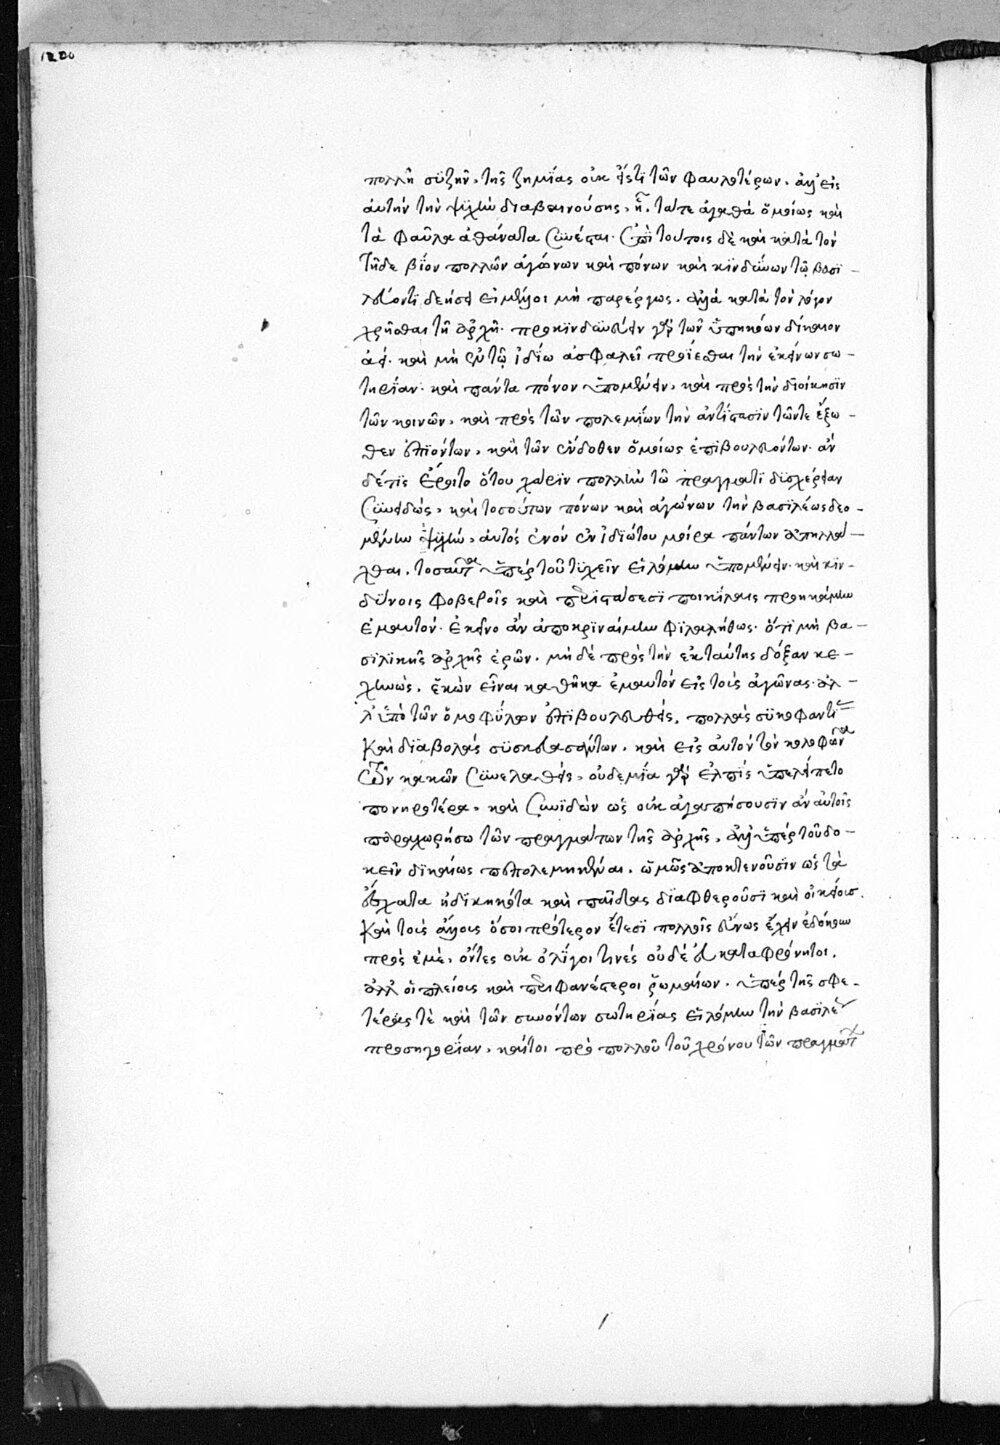 1200
πολλῇ συζῆν, τῆς ζημίας οὐκ ἔστι τῶν φαυλοτέρων, ἀλλ' εἰς
αὐτὴν τὴν ψυχὴν διαβαινούσης, ᾗ τά τε ἀγαθὰ ὁμοίως καὶ
τὰ φαῦλα ἀθάνατα σύνεστι. ἐπὶ τούτοις δὲ καὶ κατὰ τὸν
τῇδε βίον πολλῶν ἀγώνων καὶ πόνων καὶ κινδύνων τῷ βασι-
λεύοντι δεήσει εἰ μέλλοι μὴ παρέργως, ἀλλὰ κατὰ τὸν λόγον
χρῆσθαι τῇ ἀρχῇ. προκινδυνεύειν γὰρ τῶν ὑπηκόων δίκαιον
ἀεὶ. καὶ μὴ ἐν τῷ ἰδίῳ ἀσφαλεῖ προΐεσθαι τὴν ἐκείνων σω-
τηρίαν. καὶ πάντα πόνον ὑπομένειν, καὶ πρὸς τὴν διοίκησιν
τῶν κοινῶν, καὶ πρὸς τῶν πολεμίων τὴν ἀντίστασιν τῶν τε ἔξω-
θεν ἐπιόντων, καὶ τῶν ἔνδοθεν ὁμοίως ἐπιβουλευόντων. ἂν
δέ τις ἔροιτο ὅτου χάριν πολλὴν τῷ πράγματι δυσχέρειαν
συνειδὼς, καὶ τοσούτων πόνων καὶ ἀγώνων τὴν βασιλέως δεο-
μένην ψυχὴν, αὐτὸς ἐνὸν ἐν ἰδιώτου μοίρᾳ πάντων ἀπηλλά-
χθαι, τοσαῦτα ὑπὲρ τοῦ τυχεῖν εἱλόμην ὑπομένειν. καὶ κιν-
δύνοις φοβεροῖς καὶ περιστάσεσι ποικίλαις προηκάμην
ἐμαυτόν. ἐκεῖνο ἂν ἀποκριναίμην φιλαλήθως. ὅτι μὴ βα-
σιλικῆς ἀρχῆς ἐρῶν, μηδὲ πρὸς τὴν ἐκ ταύτης δόξαν κε-
χηνὼς, ἑκὼν εἶναι καθῆκα ἐμαυτὸν εἰς τοὺς ἀγῶνας. ἀλ-
λ' ὑπὸ τῶν ὁμοφύλων ἐπιβουλευθεὶς, πολλὰς συκοφαντί
καὶ διαβολὰς συσκευασάντων, καὶ εἰς αὐτὸν τὸν κολοφῶνα
τῶν κακῶν συνελαθεὶς, οὐδεμία γὰρ ἐλπὶς ὑπελείπετο
πονηροτέρα, καὶ συνιδὼν ὡς οὐκ ἀγαπήσουσιν ἂν αὐτοῖς
παραχωρήσω τῶν πραγμάτων τῆς ἀρχῆς, ἀλλ' ὑπὲρ τοῦ δο-
κεῖν δικαίως πεπολεμηκέναι, ὠμῶς ἀποκτενοῦσιν ὡς τὰ
ἔσχατα ἠδικηκότα καὶ παῖδας διαφθεροῦσι καὶ οἰκείους.
καὶ τοὺς ἄλλους ὅσοι πρότερον ἔτεσι πολλοῖς εὔνως ἔχειν ἐδόκουν
πρὸς ἐμὲ, ὄντες οὐκ ὀλίγοι τινὲς οὐδὲ εὐκαταφρόνητοι.
ἀλλ' οἱ πλείους καὶ περιφανέστεροι ῥωμαίων. ὑπὲρ τῆς σφε-
τέρας τὲ καὶ τῶν συνόντων σωτηρίας εἱλόμην τὴν βασιλέ
προσηγορίαν, καίτοι πρὸ πολλοῦ τοῦ χρόνου τῶν πραγμάτ